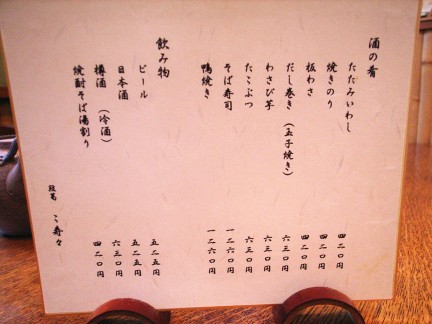 酒の肴
たたみいわし 四二〇円
焼きのり 四二〇円
板わさ 四二〇円
だし巻き(玉子焼き) 六三〇円
わさび芋 六三〇円
たこぶつ 六三〇円
そば寿司 一二六〇円
鴨焼き 一二六〇円
飲み物
ビール 五二五円
日本酒 五二五円
樽酒(冷酒) 六三〇円
焼酎そば湯割り 四二〇円
段葛 こ寿々